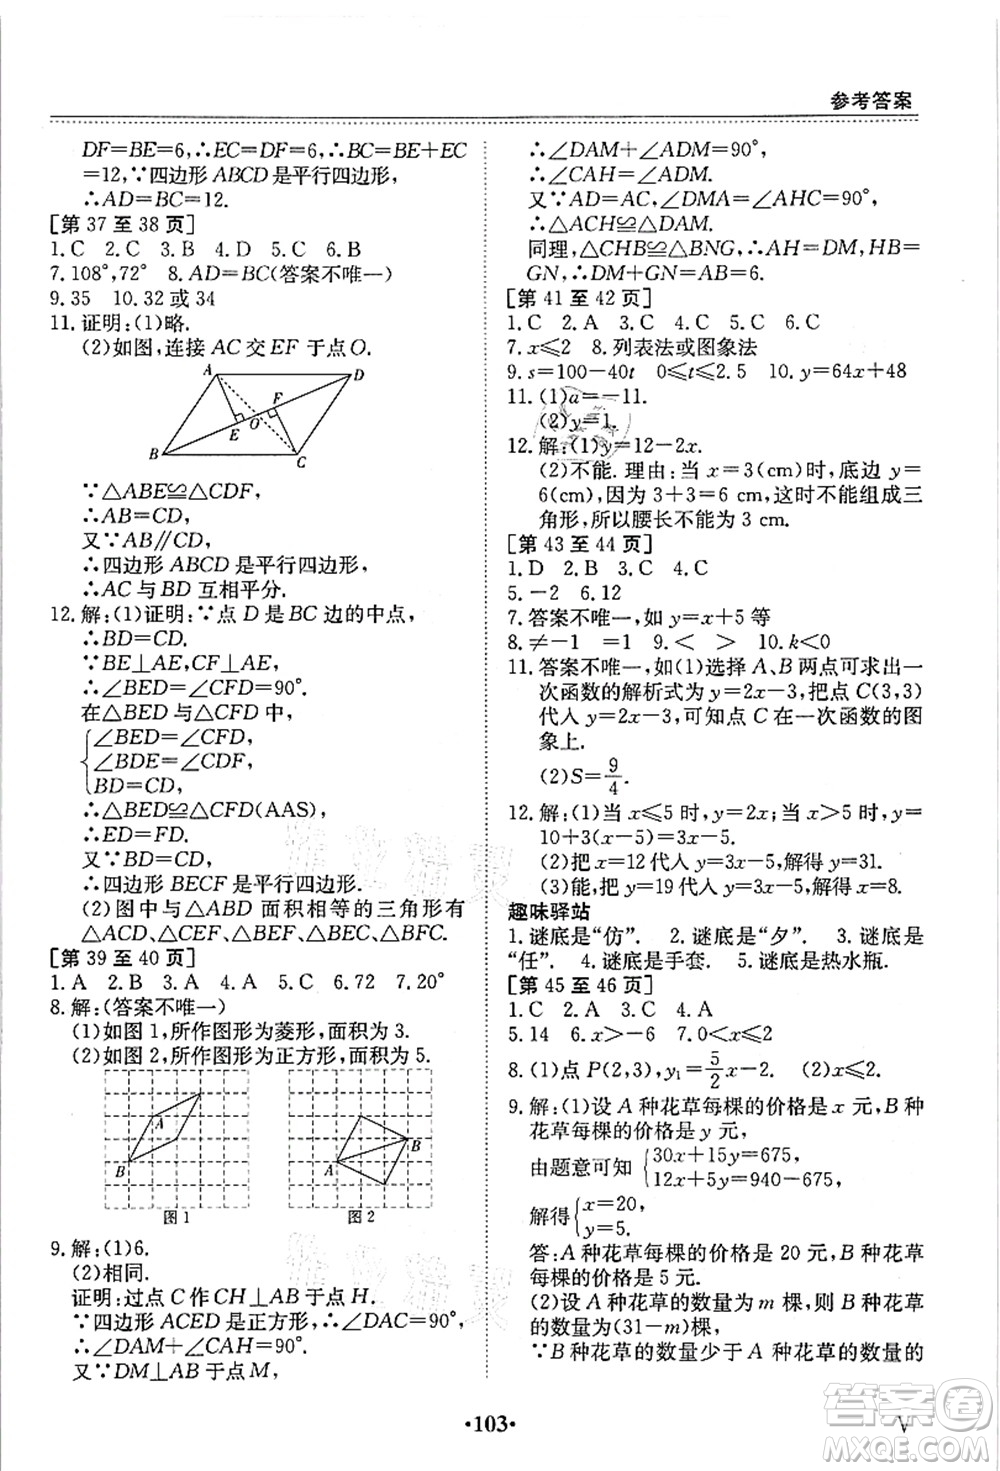 参考答案
DF=BE=6,∴EC=DF=6,∴BC=BE+EC
=12,∵四边形 ABCD 是平行四边形,
∴AD=BC=12.
[第 37 至 38 页]
1. C 2. C 3. B 4. D 5. C 6. B
7. 108°,72° 8. AD=BC(答案不唯一)
9. 35 10. 32 或 34
11. 证明:(1)略.
(2)如图,连接 AC 交 EF 于点 O.
A D F E O B C
∵△ABE≌△CDF,
∴AB=CD,
又∵AB∥CD,
∴四边形 ABCD 是平行四边形,
∴AC 与 BD 互相平分.
12. 解:(1)证明:∵点 D 是 BC 边的中点,
∴BD=CD.
∵BE⊥AE,CF⊥AE,
∴∠BED=∠CFD=90°.
在△BED 与△CFD 中,
∠BED=∠CFD,
∠BDE=∠CDF,
BD=CD,
∴△BED≌△CFD(AAS)
∴ED=FD.
又∵BD=CD,
∴四边形 BECF 是平行四边形.
(2)图中与△ABD 面积相等的三角形有
△ACD、△CEF、△BEF、△BEC、△BFC.
[第 39 至 40 页]
1. A 2. B 3. A 4. A 5. C 6. 72 7. 20°
8. 解:(答案不唯一)
(1)如图 1,所作图形为菱形,面积为 3.
(2)如图 2,所作图形为正方形,面积为 5.
A B
A B
图 1 图 2
9. 解:(1)6.
(2)相同.
证明:过点 C 作 CH⊥AB 于点 H.
∵四边形 ACED 是正方形,∴∠DAC=90°,
∴∠DAM+∠CAH=90°.
又∵DM⊥AB 于点 M,
∴∠DAM+∠ADM=90°,
∴∠CAH=∠ADM.
又∵AD=AC,∠DMA=∠AHC=90°,
∴△ACH≌△DAM.
同理,△CHB≌△BNG,∴AH=DM,HB=
GN,∴DM+GN=AB=6.
[第 41 至 42 页]
1. C 2. A 3. C 4. A 5. B 6. C
7. x≤2 8. 列表法或图象法
9. s=100−40t 0≤t≤2.5 10. y=64x+48
11. (1)a=−11.
(2)y=1.
12. 解:(1)y=12−2x.
(2)不能. 理由:当 x=3(cm)时,底边 y=
6(cm),因为 3+3=6 cm,这时不能组成三
角形,所以腰长不能为 3 cm.
[第 43 至 44 页]
1. D 2. B 3. A 4. A
5. −2 6. 12
7. 答案不唯一,如 y=x+5 等
8. ≠−1 =1 9. < > 10. k<0
11. 答案不唯一,如(1)选择 A、B 两点可求出一
次函数的解析式为 y=2x−3,把点 C(3,3)
代人 y=2x−3,可知点 C 在一次函数的图
象上.
(2)S=9/4.
12. 解:(1)当 x≤5 时,y=2x;当 x>5 时,y=
10+3(x−5)=3x−5.
(2)把 x=12 代人 y=3x−5,解得 y=31.
(3)能,把 y=19 代人 y=3x−5,解得 x=8.
趣味驿站
1. 谜底是“仿”. 2. 谜底是“夕”. 3. 谜底是
“任”. 4. 谜底是手套. 5. 谜底是热水瓶.
[第 45 至 46 页]
1. C 2. C 3. C 4. A
5. 14 6. x>−6 7. 0<x≤2
8. (1)点 P(2,3),y₁=5/2x−2. (2)x≤2.
9. 解:(1)设 A 种花草每棵的价格是 x 元,B 种
花草每棵的价格是 y 元,
由题意可知 {30x+15y=675,
12x+5y=940−675,
解得 {x=20,
y=5.
答:A 种花草每棵的价格是 20 元,B 种花
草每棵的价格是 5 元.
(2)设 A 种花草的数量为 m 棵,则 B 种花
草的数量为(31−m)棵,
∵B 种花草的数量少于 A 种花草的数量的
·103·
V
答案圈
MXQE.COM